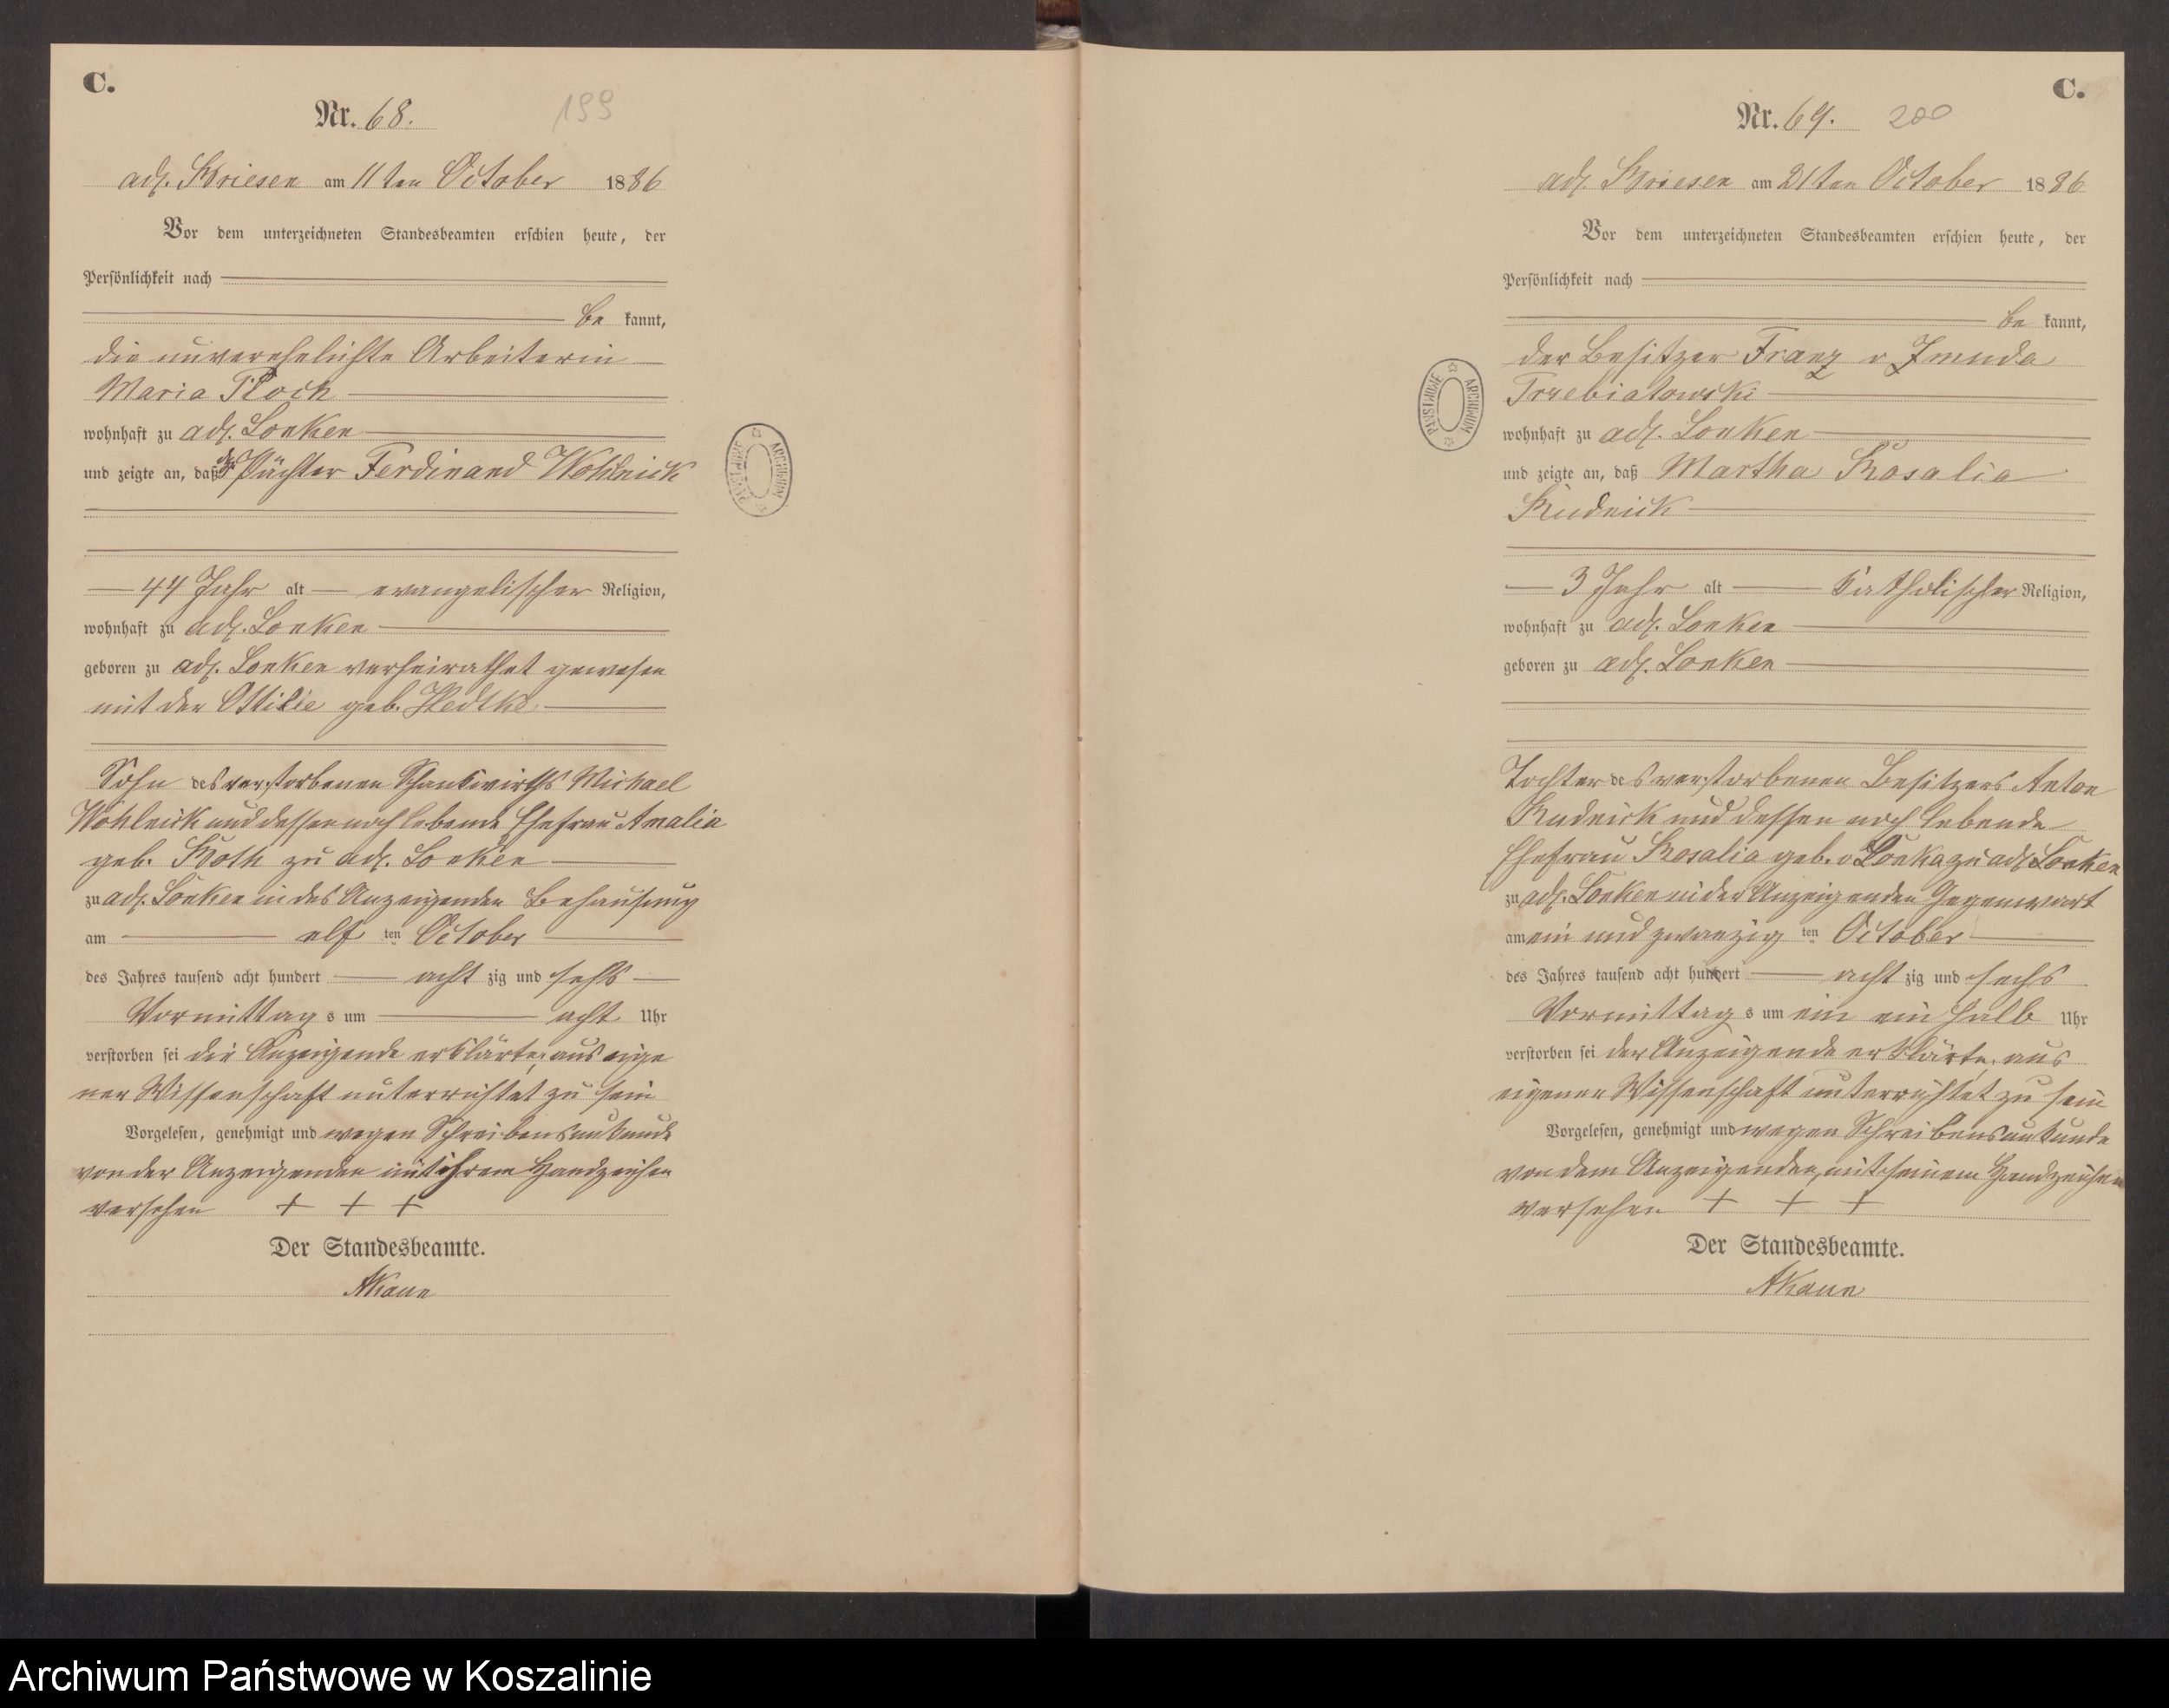 C.
Nr. 68.
199
adl. Briesen am 11ten October 1886
Vor dem unterzeichneten Standesbeamten erschien heute, der
Persönlichkeit nach
be kannt,
die unverehelichte Arbeiterin
Maria Plock
wohnhaft zu adl. Lonken
und zeigte an, daß der Pächter Ferdinand Wohlneick
44 Jahr alt evangelischer Religion,
wohnhaft zu adl. Lonken
geboren zu adl. Lonken verheirathet gewesen
mit der Ottilie geb.
Sohn des verstorbenen Schankwirths Michael
Wohlneick und dessen noch lebende Ehefrau Amalia
geb. zu adl. Lonken
zu adl. Lonken in des Anzeigenden Behausung
am elf ten October
des Jahres tausend acht hundert acht zig und sechs
Vormittag s um acht Uhr
verstorben sei die Anzeigende erklärte, aus eige
ner Wissenschaft unterrichtet zu sein
Vorgelesen, genehmigt und wegen Schreibensunkunde
von der Anzeigenden mit ihrem Handzeichen
versehen + + +
Der Standesbeamte.
AKaun
ARCHIWUM PAŃSTWOWE
C.
Nr. 69.
200
adl. Briesen am 21ten October 1886
Vor dem unterzeichneten Standesbeamten erschien heute, der
Persönlichkeit nach
be kannt,
der Besitzer Franz v Zmuda
Trzebiatowski
wohnhaft zu adl. Lonken
und zeigte an, daß Martha Rosalia
Rudnick
3 Jahr alt katholischer Religion,
wohnhaft zu adl. Lonken
geboren zu adl. Lonken
Tochter des verstorbenen Besitzers Anton
Rudnick und dessen noch lebende
Ehefrau Rosalia geb. v Lonka zu adl. Lonken
zu adl. Lonken in der Anzeigenden Gegenwart
am ein und zwanzig ten October
des Jahres tausend acht hundert acht zig und sechs
Vormittag s um ein ein halb Uhr
verstorben sei der Anzeigende erklärte, aus
eigener Wissenschaft unterrichtet zu sein
Vorgelesen, genehmigt und wegen Schreibensunkunde
von dem Anzeigenden, mit seinem Handzeichen
versehen + + +
Der Standesbeamte.
AKaun
ARCHIWUM PAŃSTWOWE
Archiwum Państwowe w Koszalinie